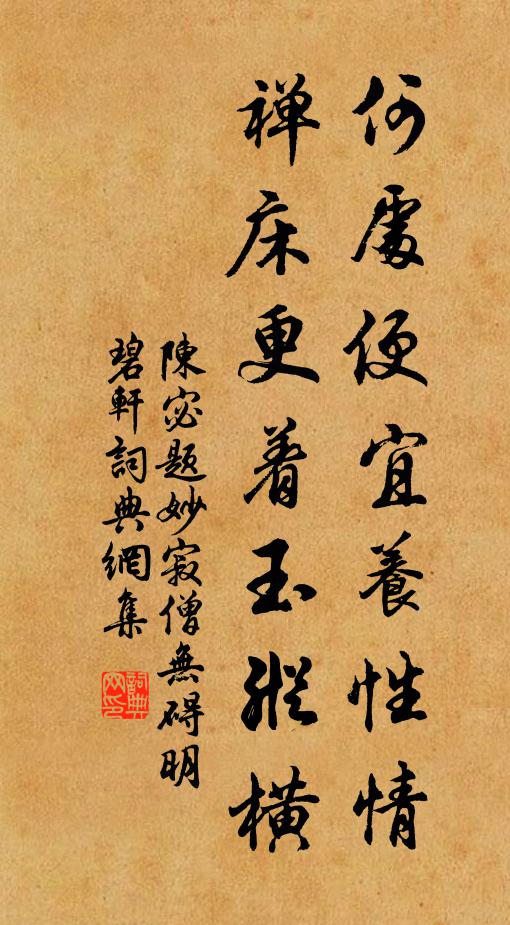 何處便宜養性情
禅床更着玉縱橫
陳宓題妙寂僧無碍明
碧軒詞典網集
詞典網印